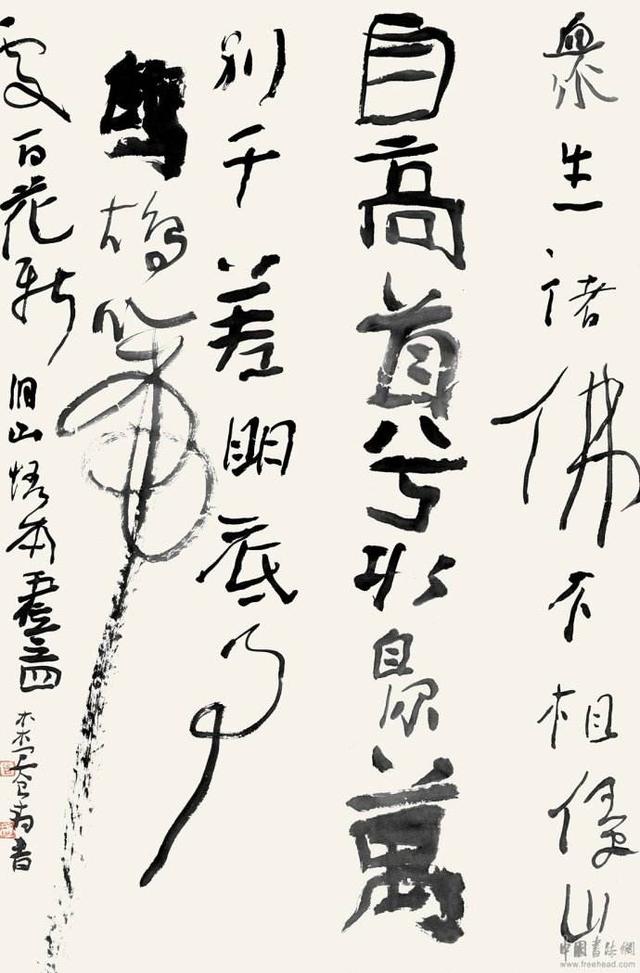 衆生诸佛不相侵山
自高首兮水自深萬
别千差明底事
鷓鸪啼
處百花新 旧山悟本五位之四 書
中國書法網
www.freehead.com